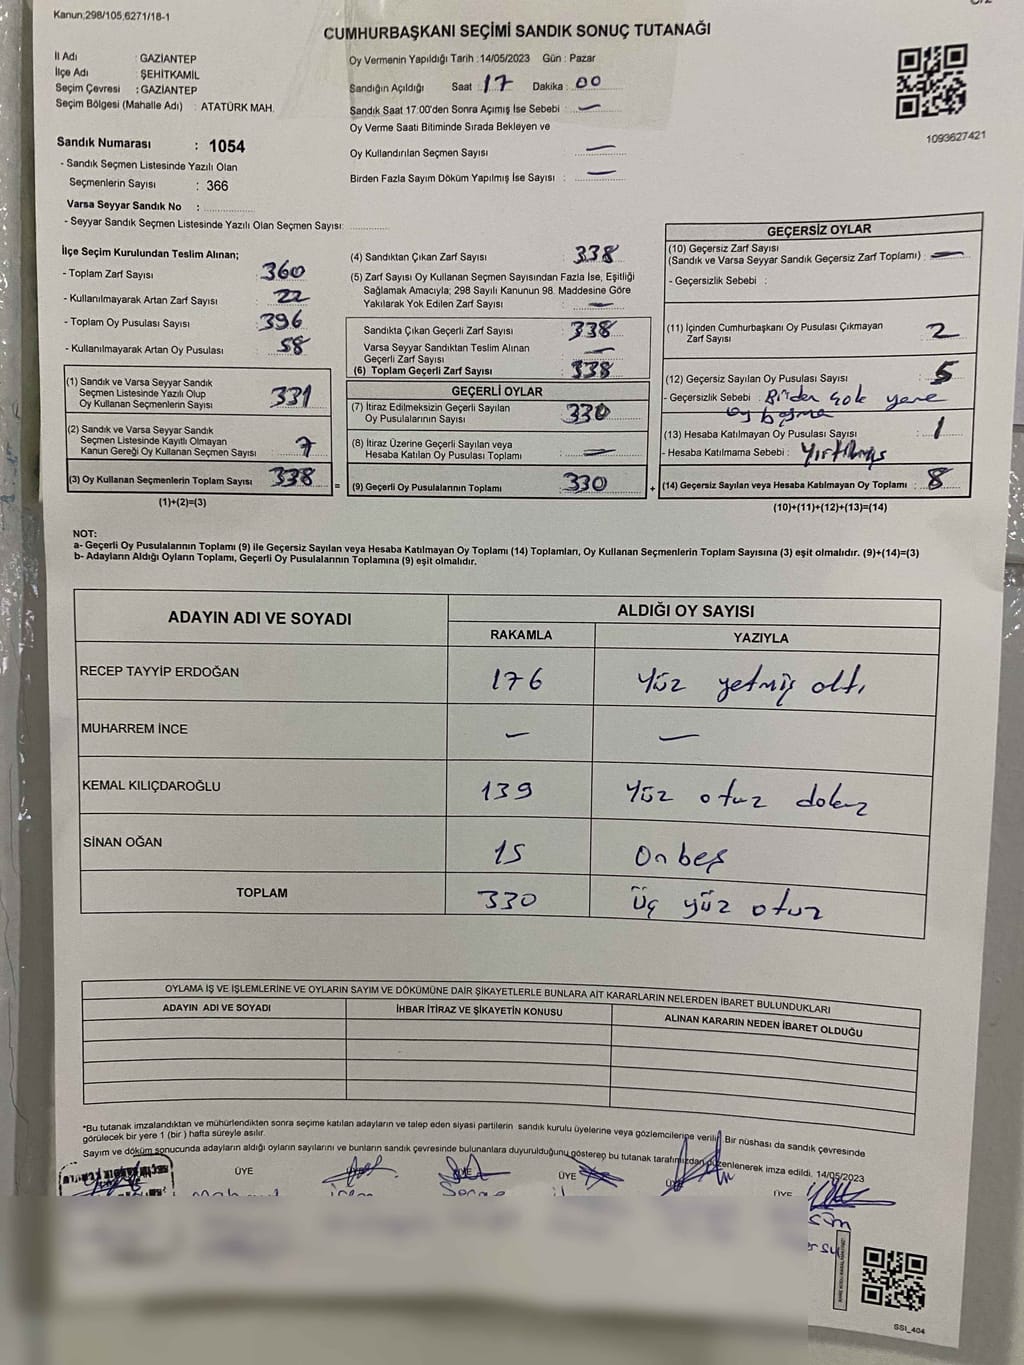 Kanun;298/105,6271/18-1
CUMHURBAŞKANI SEÇİMİ SANDIK SONUÇ TUTANAĞI
İl Adı : GAZİANTEP
İlçe Adı : ŞEHİTKAMİL
Seçim Çevresi : GAZİANTEP
Seçim Bölgesi (Mahalle Adı) : ATATÜRK MAH.
Oy Vermenin Yapıldığı Tarih : 14/05/2023 Gün : Pazar
Sandığın Açıldığı Saat : 17 Dakika : 00
Sandık Saat 17:00'den Sonra Açımış İse Sebebi : —
Oy Verme Saati Bitiminde Sırada Bekleyen ve
Oy Kullandırılan Seçmen Sayısı : —
Birden Fazla Sayım Döküm Yapılmış İse Sayısı : —
1093627421
Sandık Numarası : 1054
- Sandık Seçmen Listesinde Yazılı Olan
Seçmenlerin Sayısı : 366
Varsa Seyyar Sandık No :
- Seyyar Sandık Seçmen Listesinde Yazılı Olan Seçmen Sayısı:
İlçe Seçim Kurulundan Teslim Alınan;
- Toplam Zarf Sayısı : 360
- Kullanılmayarak Artan Zarf Sayısı : 22
- Toplam Oy Pusulası Sayısı : 396
- Kullanılmayarak Artan Oy Pusulası : 58
(1) Sandık ve Varsa Seyyar Sandık
Seçmen Listesinde Yazılı Olup
Oy Kullanan Seçmenlerin Sayısı : 331
(2) Sandık ve Varsa Seyyar Sandık
Seçmen Listesinde Kayıtlı Olmayan
Kanun Gereği Oy Kullanan Seçmen Sayısı : 7
(3) Oy Kullanan Seçmenlerin Toplam Sayısı : 338 =
(1)+(2)=(3)
(4) Sandıktan Çıkan Zarf Sayısı : 338
(5) Zarf Sayısı Oy Kullanan Seçmen Sayısından Fazla İse, Eşitliği
Sağlamak Amacıyla; 298 Sayılı Kanunun 98. Maddesine Göre
Yakılarak Yok Edilen Zarf Sayısı : —
Sandıkta Çıkan Geçerli Zarf Sayısı : 338
Varsa Seyyar Sandıktan Teslim Alınan
Geçerli Zarf Sayısı : —
(6) Toplam Geçerli Zarf Sayısı : 338
GEÇERLİ OYLAR
(7) İtiraz Edilmeksizin Geçerli Sayılan
Oy Pusulalarının Sayısı : 330
(8) İtiraz Üzerine Geçerli Sayılan veya
Hesaba Katılan Oy Pusulası Toplamı : —
(9) Geçerli Oy Pusulalarının Toplamı : 330 +
GEÇERSİZ OYLAR
(10) Geçersiz Zarf Sayısı
(Sandık ve Varsa Seyyar Sandık Geçersiz Zarf Toplamı) : —
- Geçersizlik Sebebi :
(11) İçinden Cumhurbaşkanı Oy Pusulası Çıkmayan
Zarf Sayısı : 2
(12) Geçersiz Sayılan Oy Pusulası Sayısı : 5
- Geçersizlik Sebebi : Birden çok yere
oy basma
(13) Hesaba Katılmayan Oy Pusulası Sayısı : 1
- Hesaba Katılmama Sebebi : Yırtılmış
(14) Geçersiz Sayılan veya Hesaba Katılmayan Oy Toplamı : 8
(10)+(11)+(12)+(13)=(14)
NOT:
a- Geçerli Oy Pusulalarının Toplamı (9) ile Geçersiz Sayılan veya Hesaba Katılmayan Oy Toplamı (14) Toplamları, Oy Kullanan Seçmenlerin Toplam Sayısına (3) eşit olmalıdır. (9)+(14)=(3)
b- Adayların Aldığı Oyların Toplamı, Geçerli Oy Pusulalarının Toplamına (9) eşit olmalıdır.
ADAYIN ADI VE SOYADI ALDIĞI OY SAYISI
RAKAMLA YAZIYLA
RECEP TAYYİP ERDOĞAN 176 Yüz yetmiş altı
MUHARREM İNCE — —
KEMAL KILIÇDAROĞLU 139 Yüz otuz dokuz
SİNAN OĞAN 15 On beş
TOPLAM 330 üç yüz otuz
OYLAMA İŞ VE İŞLEMLERİNE VE OYLARIN SAYIM VE DÖKÜMÜNE DAİR ŞİKAYETLERLE BUNLARA AİT KARARLARIN NELERDEN İBARET BULUNDUKLARI
ADAYIN ADI VE SOYADI İHBAR İTİRAZ VE ŞİKAYETİN KONUSU ALINAN KARARIN NEDEN İBARET OLDUĞU
*Bu tutanak imzalandıktan ve mühürlendikten sonra seçime katılan adayların ve talep eden siyasi partilerin sandık kurulu üyelerine veya gözlemcilerine verilir. Bir nüshası da sandık çevresinde
görülecek bir yere 1 (bir) hafta süreyle asılır.
Sayım ve döküm sonucunda adayların aldığı oyların sayılarını ve bunların sandık çevresinde bulunanlara duyurulduğunu gösterep bu tutanak tarafımızdan düzenlenerek imza edildi. 14/05/2023
ÜYE ÜYE ÜYE ÜYE ÜYE
SSI_404